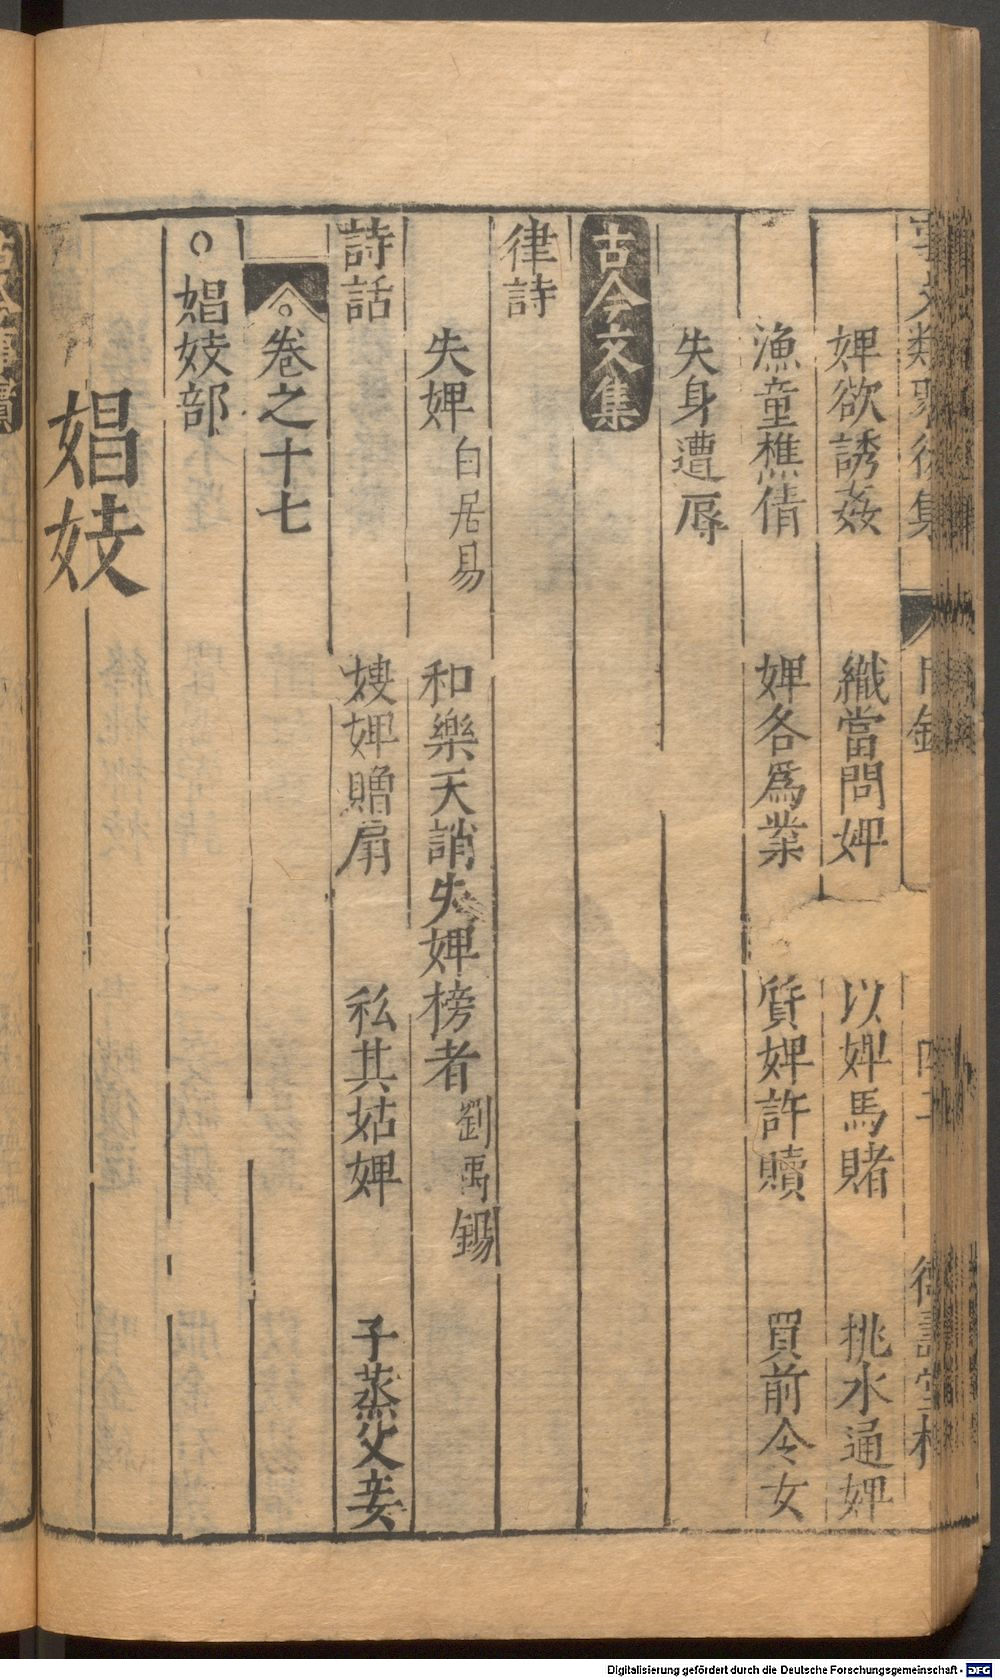 事文類聚後集　目錄　四十　德壽堂梓
婢欲誘姦　織當問婢　以婢馬賭　挑水通婢
漁童樵倩　婢各爲業　質婢許贖　買前令女
失身遭辱
古今文集
律詩
失婢白居易　和樂天誚失婢榜者劉禹錫
詩話　㛐婢贈扇　私其姑婢　子蒸父妾
○卷之十七
○娼妓部
娼妓
Digitalisierung gefördert durch die Deutsche Forschungsgemeinschaft - DFG